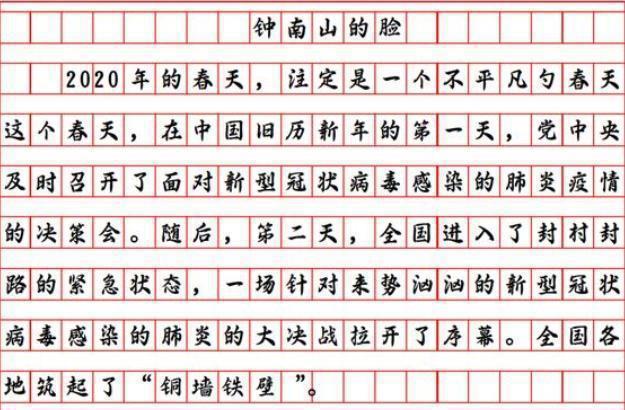 钟南山的脸
2020年的春天，注定是一个不平凡勺春天
这个春天，在中国旧历新年的第一天，党中央
及时召开了面对新型冠状病毒感染的肺炎疫情
的决策会。随后，第二天，全国进入了封村封
路的紧急状态，一场针对来势汹汹的新型冠状
病毒感染的肺炎的大决战拉开了序幕。全国各
地筑起了“铜墙铁壁”。